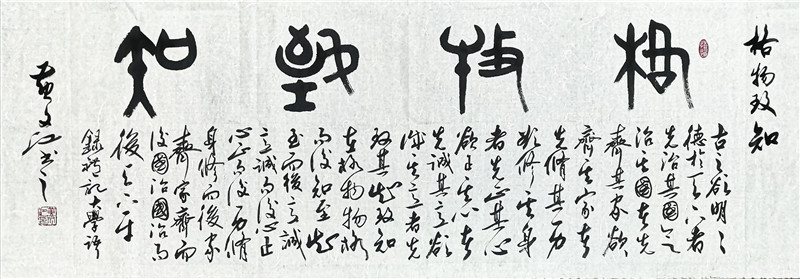 格物致知
格物致知
古之欲明々
德於天下者
先治其國欲
治其國者先
齊其家欲
齊其家者
先脩其身
欲修其身
者先正其心
欲正其心者
先誠其意欲
誠其意者先
致其知致知
在格物物格
而後知至知
至而後意誠
意誠而後心正
心正而後身脩
身修而後家
齊家齊而
後國治國治而
後天下平
錄禮記大學語
黃文江书之